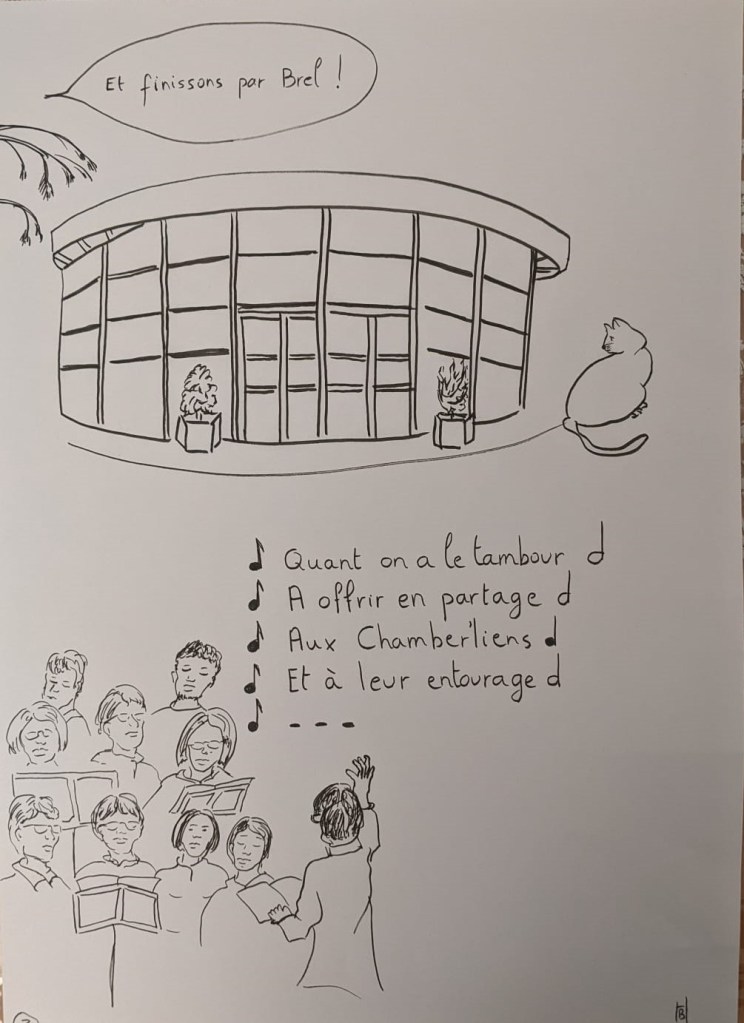 Et finissons par Brel !
Quant on a le tambour
A offrir en partage
Aux Chamber'liens
Et à leur entourage
- - -